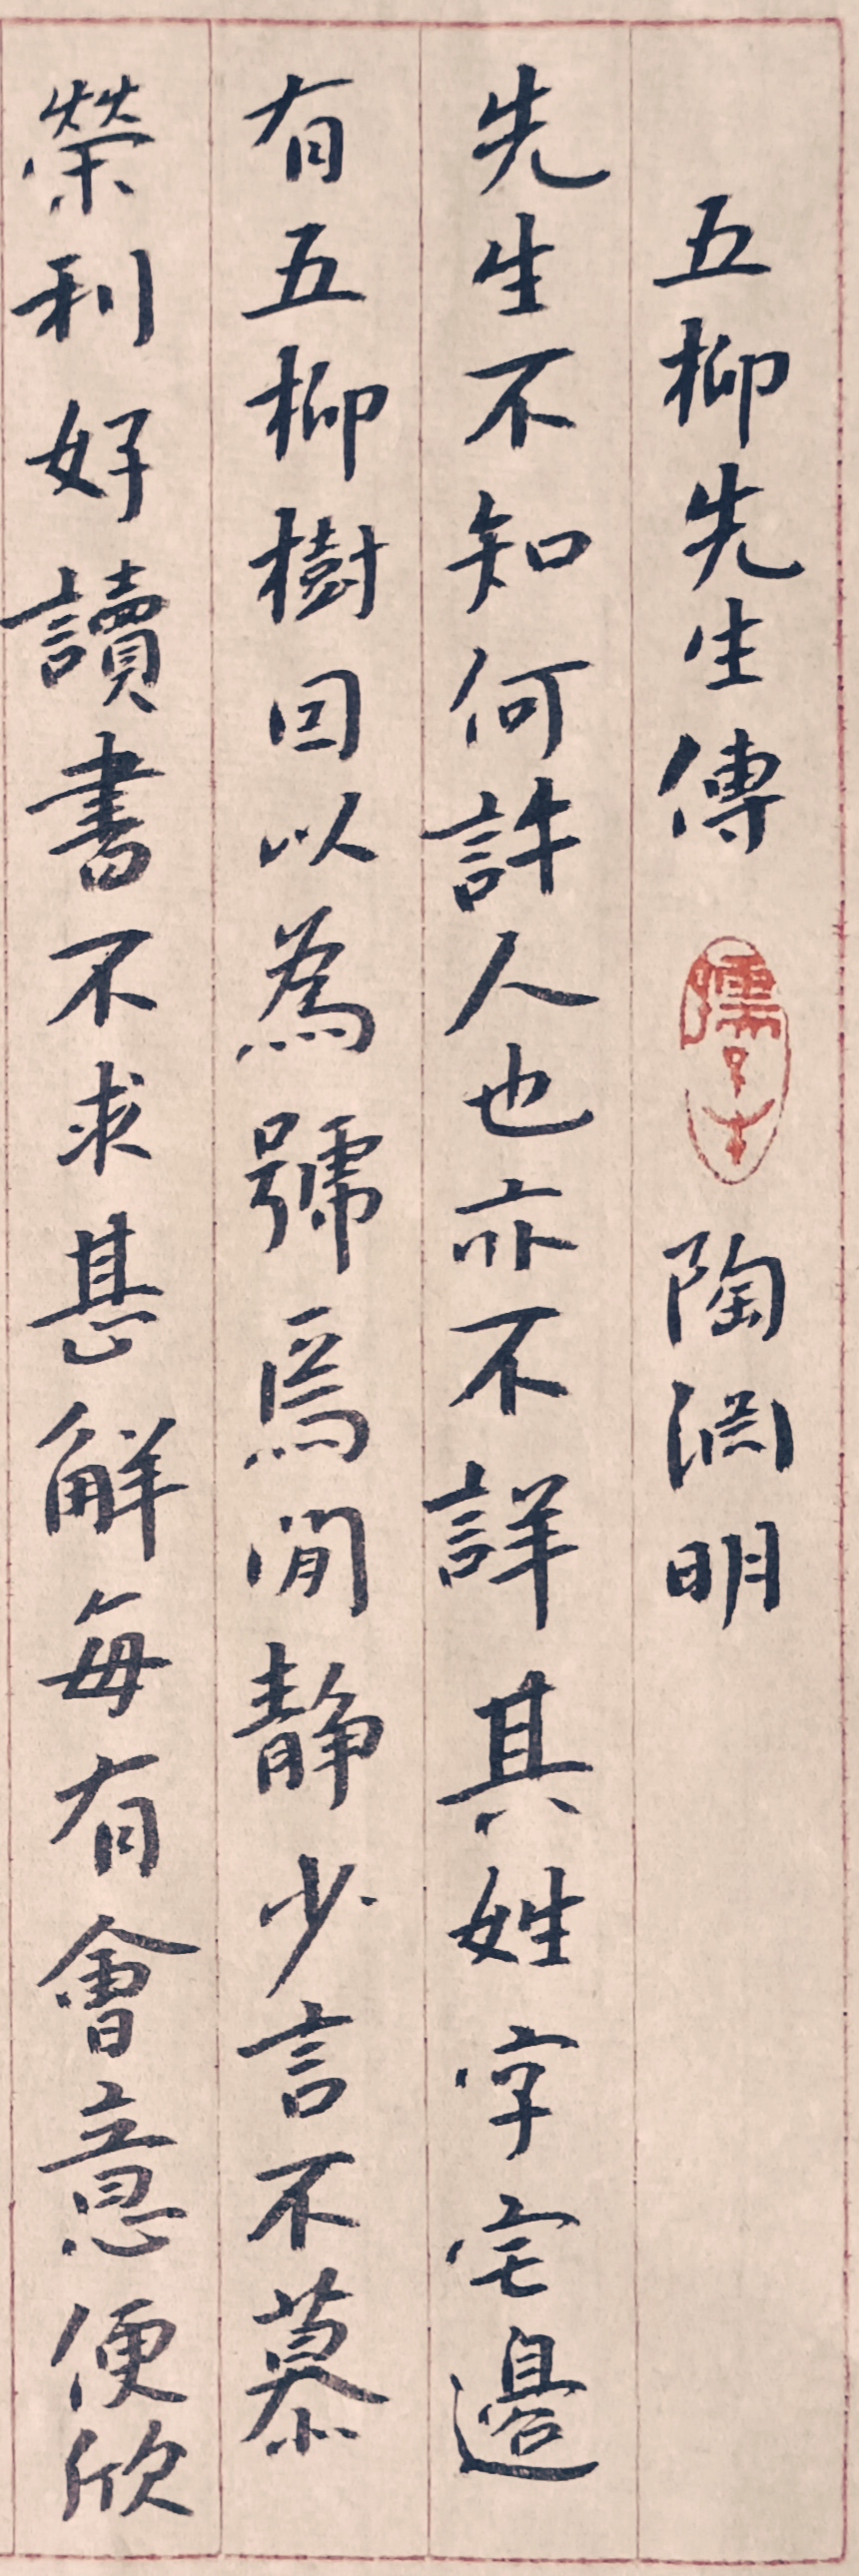 五柳先生傳
孺子牛
陶淵明
先生不知何許人也亦不詳其姓字宅邊
有五柳樹因以為號焉閒静少言不慕
榮利好讀書不求甚解每有會意便欣